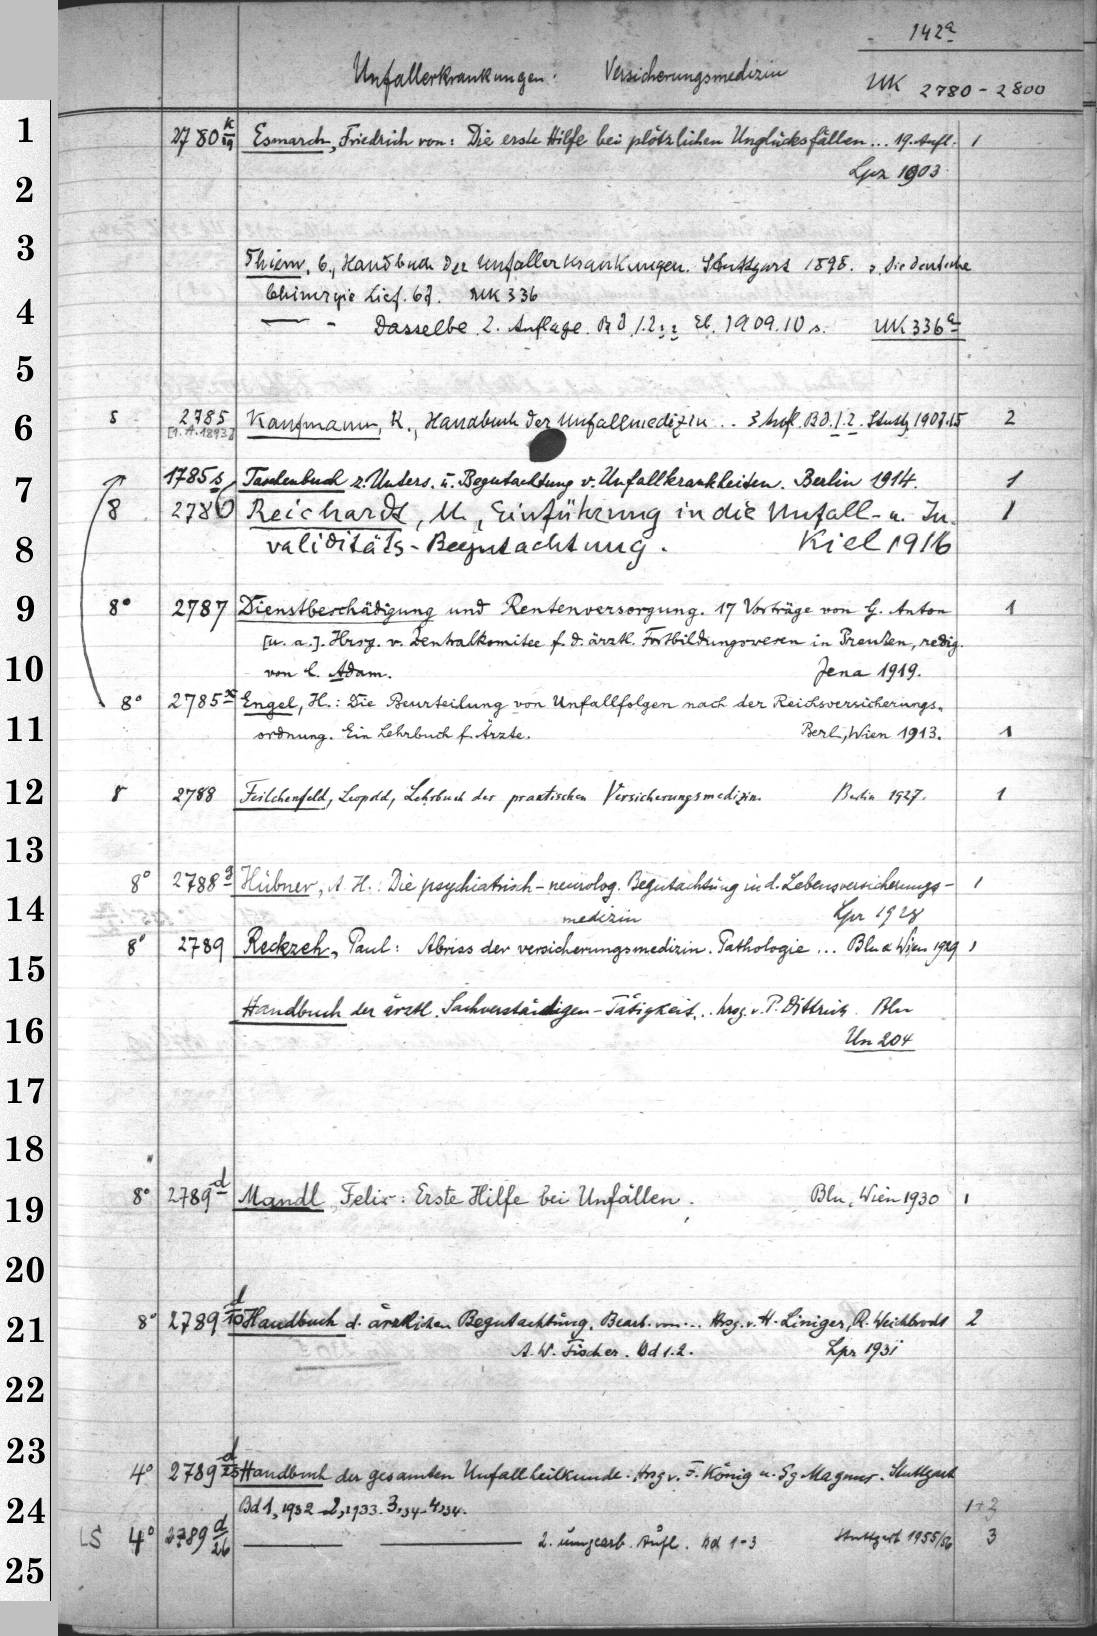 142a
Unfallerkrankungen. Versicherungsmedizin
UK 2780-2800
1 2780 k/19 Esmarch, Friedrich von: Die erste Hilfe bei plötzlichen Unglücksfällen... 19. Aufl. 1
2 Lpz 1903
3 Thiem, C., Handbuch der Unfallerkrankungen. Stuttgart 1898. Die deutsche
Chirurgie Lief. 67. UK 336
4 — - Dasselbe 2. Auflage. Bd 1.2 1909.10 UK 336a
5
6 8 2785 Kaufmann, K., Handbuch der Unfallmedizin .. 3 Aufl. Bd. 1.2. Stuttg 1907.15 2
[1. A. 1893]
7 1785s Taschenbuch z. Unters. u. Begutachtung v. Unfallkrankheiten. Berlin 1914. 1
8 2786 Reichardt, M., Einführung in die Unfall- u. In- 1
8 validitäts-Begutachtung. Kiel 1916
9 8° 2787 Dienstbeschädigung und Rentenversorgung. 17 Vorträge von G. Anton 1
[u. a.]. Hrsg. v. Zentralkomitee f. d. ärztl. Fortbildungswesen in Preußen, redig.
10 von C. Adam. Jena 1919.
8° 2785x Engel, H.: Die Beurteilung von Unfallfolgen nach der Reichsversicherungs-
11 ordnung. Ein Lehrbuch f. Ärzte. Berl., Wien 1913. 1
12 8 2788 Feilchenfeld, Leopold, Lehrbuch der praktischen Versicherungsmedizin. Berlin 1927. 1
13
8° 2788g Hübner, A. H.: Die psychiatrisch-neurolog. Begutachtung in d. Lebensversicherungs- 1
14 medizin Lpz 1928
8° 2789 Reckzeh, Paul: Abriss der versicherungsmedizin. Pathologie ... Bln & Wien 1929 1
15
Handbuch der ärztl. Sachverständigen-Tätigkeit.. hrsg. v. P. Dittrich. Bln
16 Un 204
17
18
19 8° 2789d Mandl, Felix: Erste Hilfe bei Unfällen. Bln, Wien 1930 1
20
21 8° 2789 d/10 Handbuch d. ärztlichen Begutachtung. Bearb. von... Hrsg. v. H. Liniger, R. Weichbrodt 2
A. W. Fischer. Bd 1.2. Lpz 1931
22
23 4° 2789 d/25 Handbuch der gesamten Unfallheilkunde. Hrsg v. F. König u. Gg Magnus. Stuttgart
24 Bd 1, 1932 - 2, 1933. 3, 34 - 4, 34. 1+3
LS 4° 2789 d/26 — — 2. umgearb. Aufl. Bd 1-3 Stuttgart 1955/56 3
25